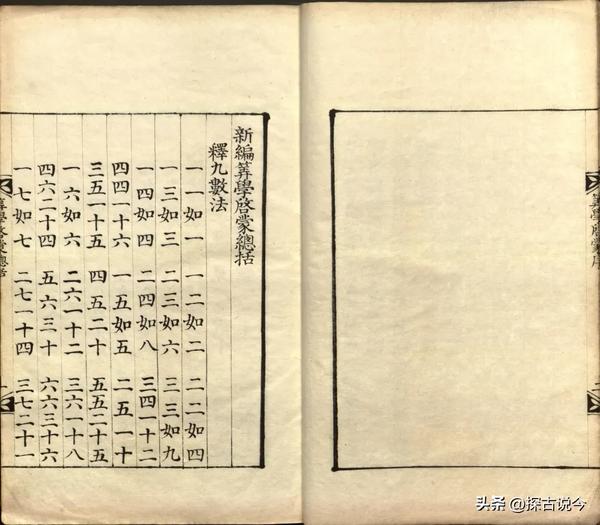 筭學啓蒙序
新編筭學啓蒙總括
釋九數法
一一如一 一二如二 二二如四
一三如三 二三如六 三三如九
一四如四 二四如八 三四一十二
四四一十六 一五如五 二五一十
三五一十五 四五二十 五五二十五
一六如六 二六一十二 三六一十八
四六二十四 五六三十 六六三十六
一七如七 二七一十四 三七二十一
筭學啓蒙總括
一
头条 @探古说今